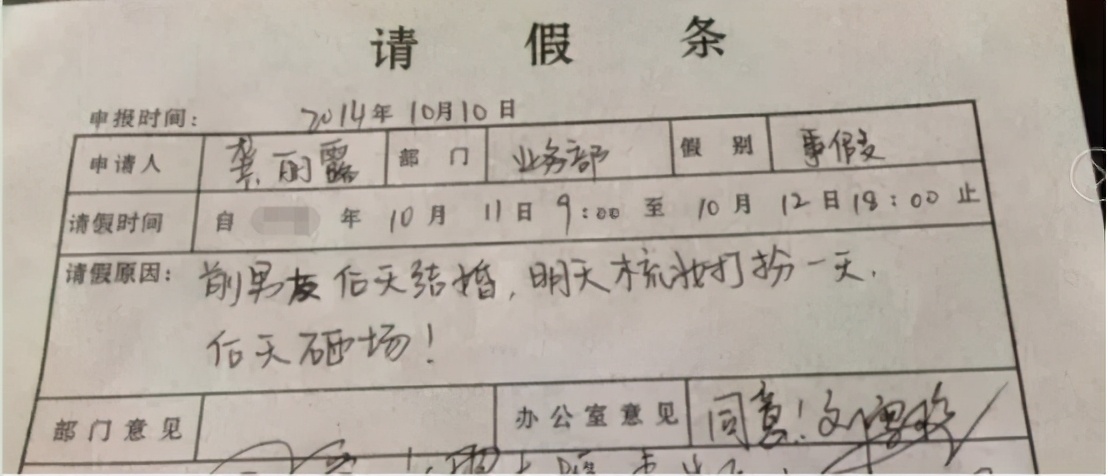 请假条
申报时间： 2014年 10月10日
申请人 龚丽露 部门 业务部 假别 事假
请假时间 自 年 10月 11日 9:00 至 10月 12日 18:00 止
请假原因： 前男友后天结婚，明天梳妆打扮一天.
后天砸场！
部门意见 办公室意见 同意！